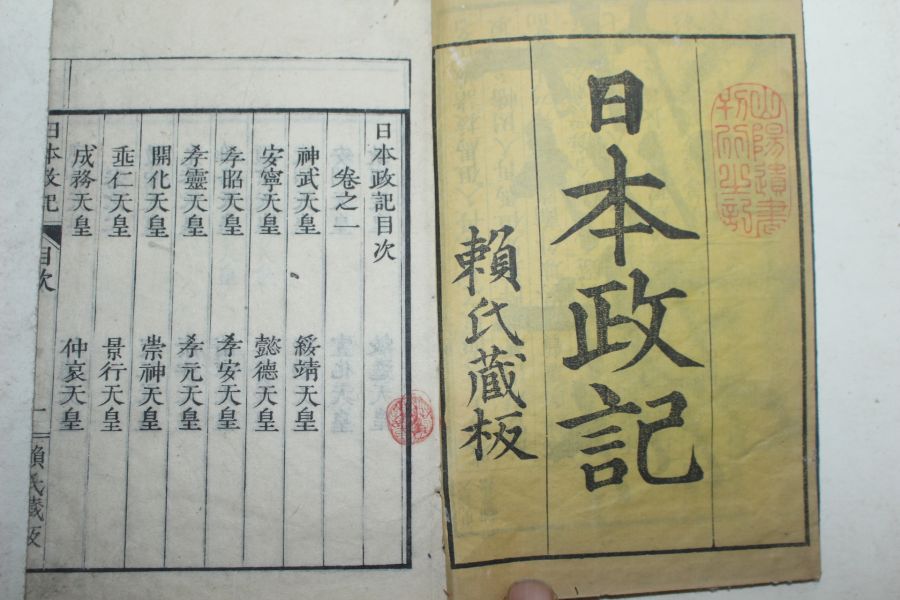 山陽遺書
刊行之記
日本政記
賴氏蔵板
日本政記目次
卷之一
神武天皇 綏靖天皇
安寧天皇 懿德天皇
孝昭天皇 孝安天皇
孝靈天皇 孝元天皇
開化天皇 崇神天皇
垂仁天皇 景行天皇
成務天皇 仲哀天皇
日本政記 目次 一 賴氏蔵板